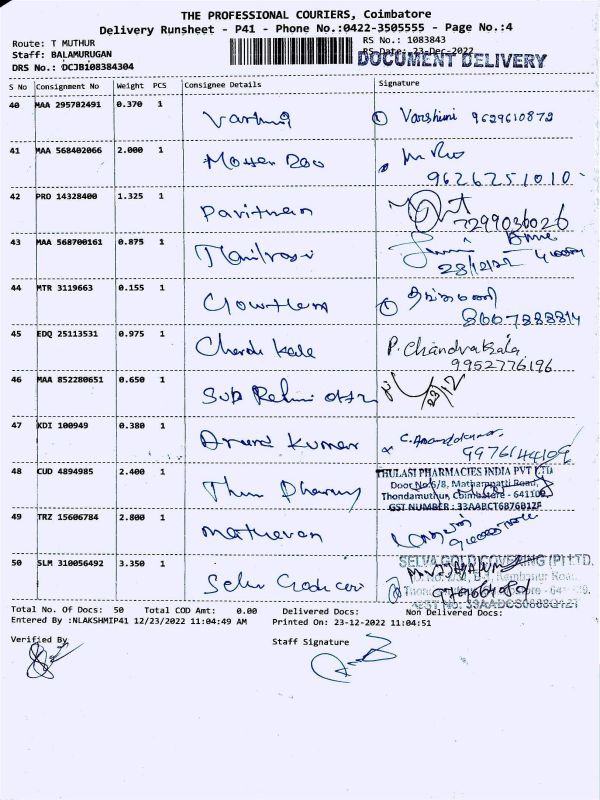 THE PROFESSIONAL COURIERS, Coimbatore
Delivery Runsheet - P41 - Phone No.:0422-3505555 - Page No.:4
Route: T MUTHUR
RS No.: 1083843
Staff: BALAMURUGAN
RS Date: 23-Dec-2022
DOCUMENT DELIVERY
DRS No.: DCJB108384304
S No Consignment No Weight PCS Consignee Details Signature
40 MAA 295782491 0.370 1 Varshini Varshini 9629610872
41 MAA 568402066 2.000 1 Mohan Rao 9626251010
42 PRO 14328400 1.325 1 Pavithran 7299036026
43 MAA 568700161 0.875 1 28/12/22
44 MTR 3119663 0.155 1 Gowtham 8667888814
45 EDQ 25113531 0.975 1 Chandrakala P. Chandrakala
9952776196
46 MAA 852280651 0.650 1 Sub
47 KDI 100949 0.380 1 Anand Kumar C. Anandakumar
9976144109
48 CUD 4894985 2.400 1
THULASI PHARMACIES INDIA PVT LTD
Door No:6/8, Mathampatti Road,
Thondamuthur, Coimbatore - 641109
GST NUMBER : 33AABCT6876B1ZF
49 TRZ 15606784 2.800 1 Mathevan
50 SLM 310056492 3.350 1
SELVA GOLD COVERING (P) LTD.
Total No. Of Docs: 50 Total COD Amt: 0.00 Delivered Docs: Non Delivered Docs:
Entered By :NLAKSHMIP41 12/23/2022 11:04:49 AM Printed On: 23-12-2022 11:04:51
Verified By
Staff Signature